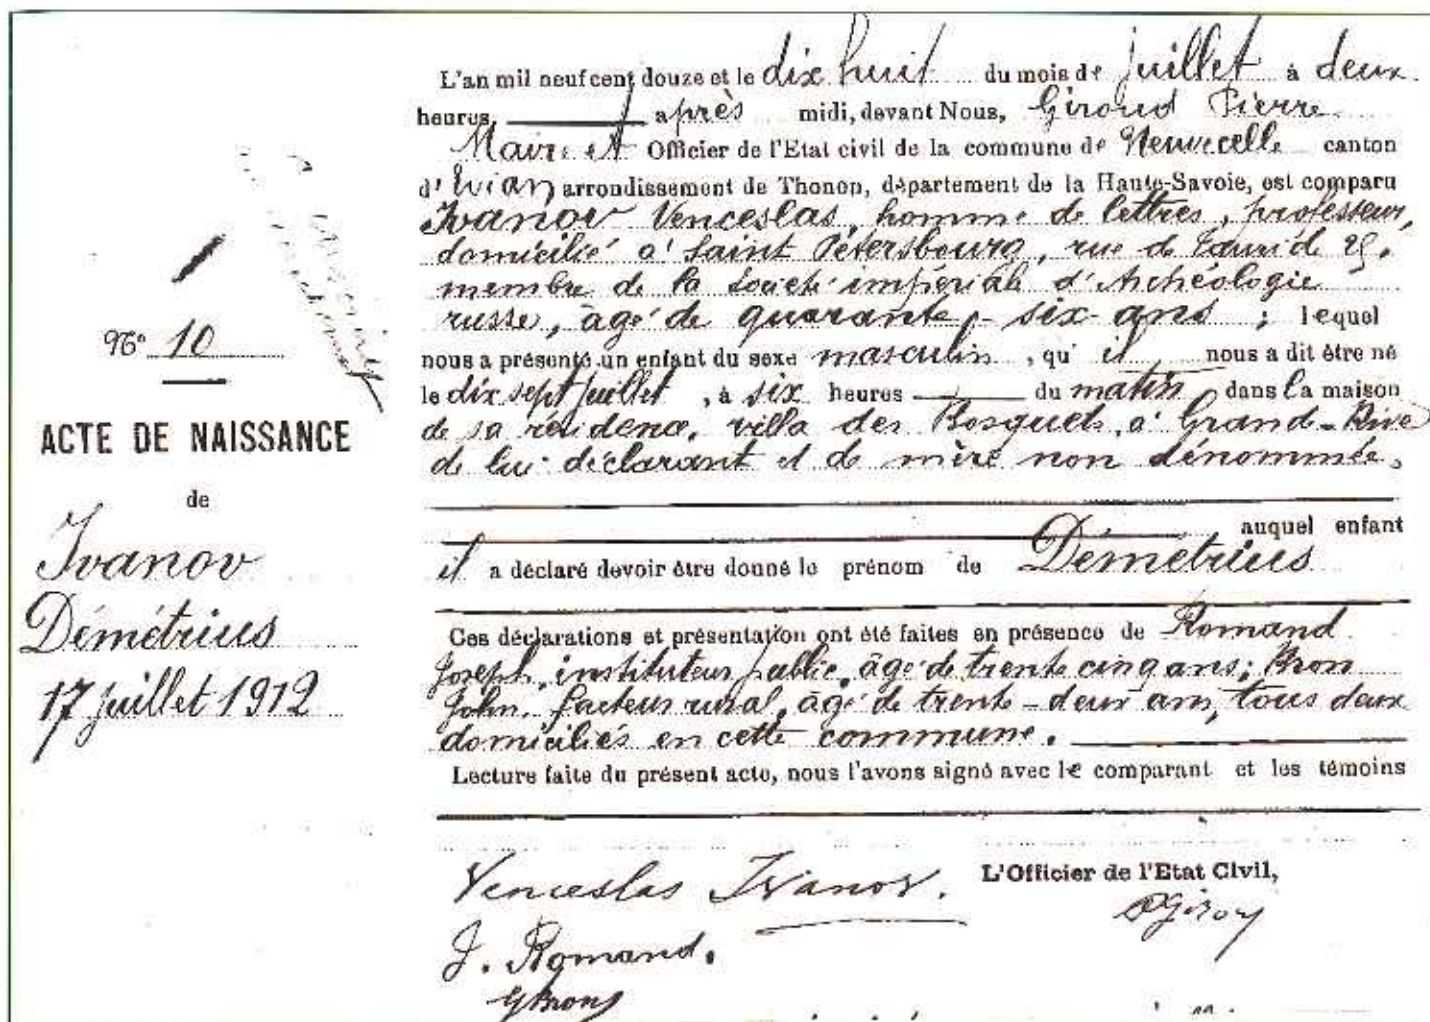 N° 10
ACTE DE NAISSANCE
de
Ivanov
Démétrius
17 juillet 1912
L'an mil neuf cent douze et le dix huit du mois de juillet à deux
heures, après midi, devant Nous, Giroud Pierre
Maire et Officier de l'Etat civil de la commune de Neuvecelle canton
d'Evian arrondissement de Thonon, département de la Haute-Savoie, est comparu
Ivanov Venceslas, homme de lettres, professeur,
domicilié à Saint Pétersbourg, rue de Tauride 25,
membre de la Société impériale d'Archéologie
russe, âgé de quarante-six ans ; lequel
nous a présenté un enfant du sexe masculin, qu'il nous a dit être né
le dix sept juillet, à six heures du matin dans la maison
de sa résidence, villa des Bosquets, à Grande-Rive
de lui déclarant et de mère non dénommée,
auquel enfant
il a déclaré devoir être donné le prénom de Démétrius
Ces déclarations et présentation ont été faites en présence de Romand
Joseph, instituteur public, âgé de trente cinq ans; Bron
John, facteur rural, âgé de trente-deux ans, tous deux
domiciliés en cette commune.
Lecture faite du présent acte, nous l'avons signé avec le comparant et les témoins
Venceslas Ivanov.
L'Officier de l'Etat Civil,
J. Romand.